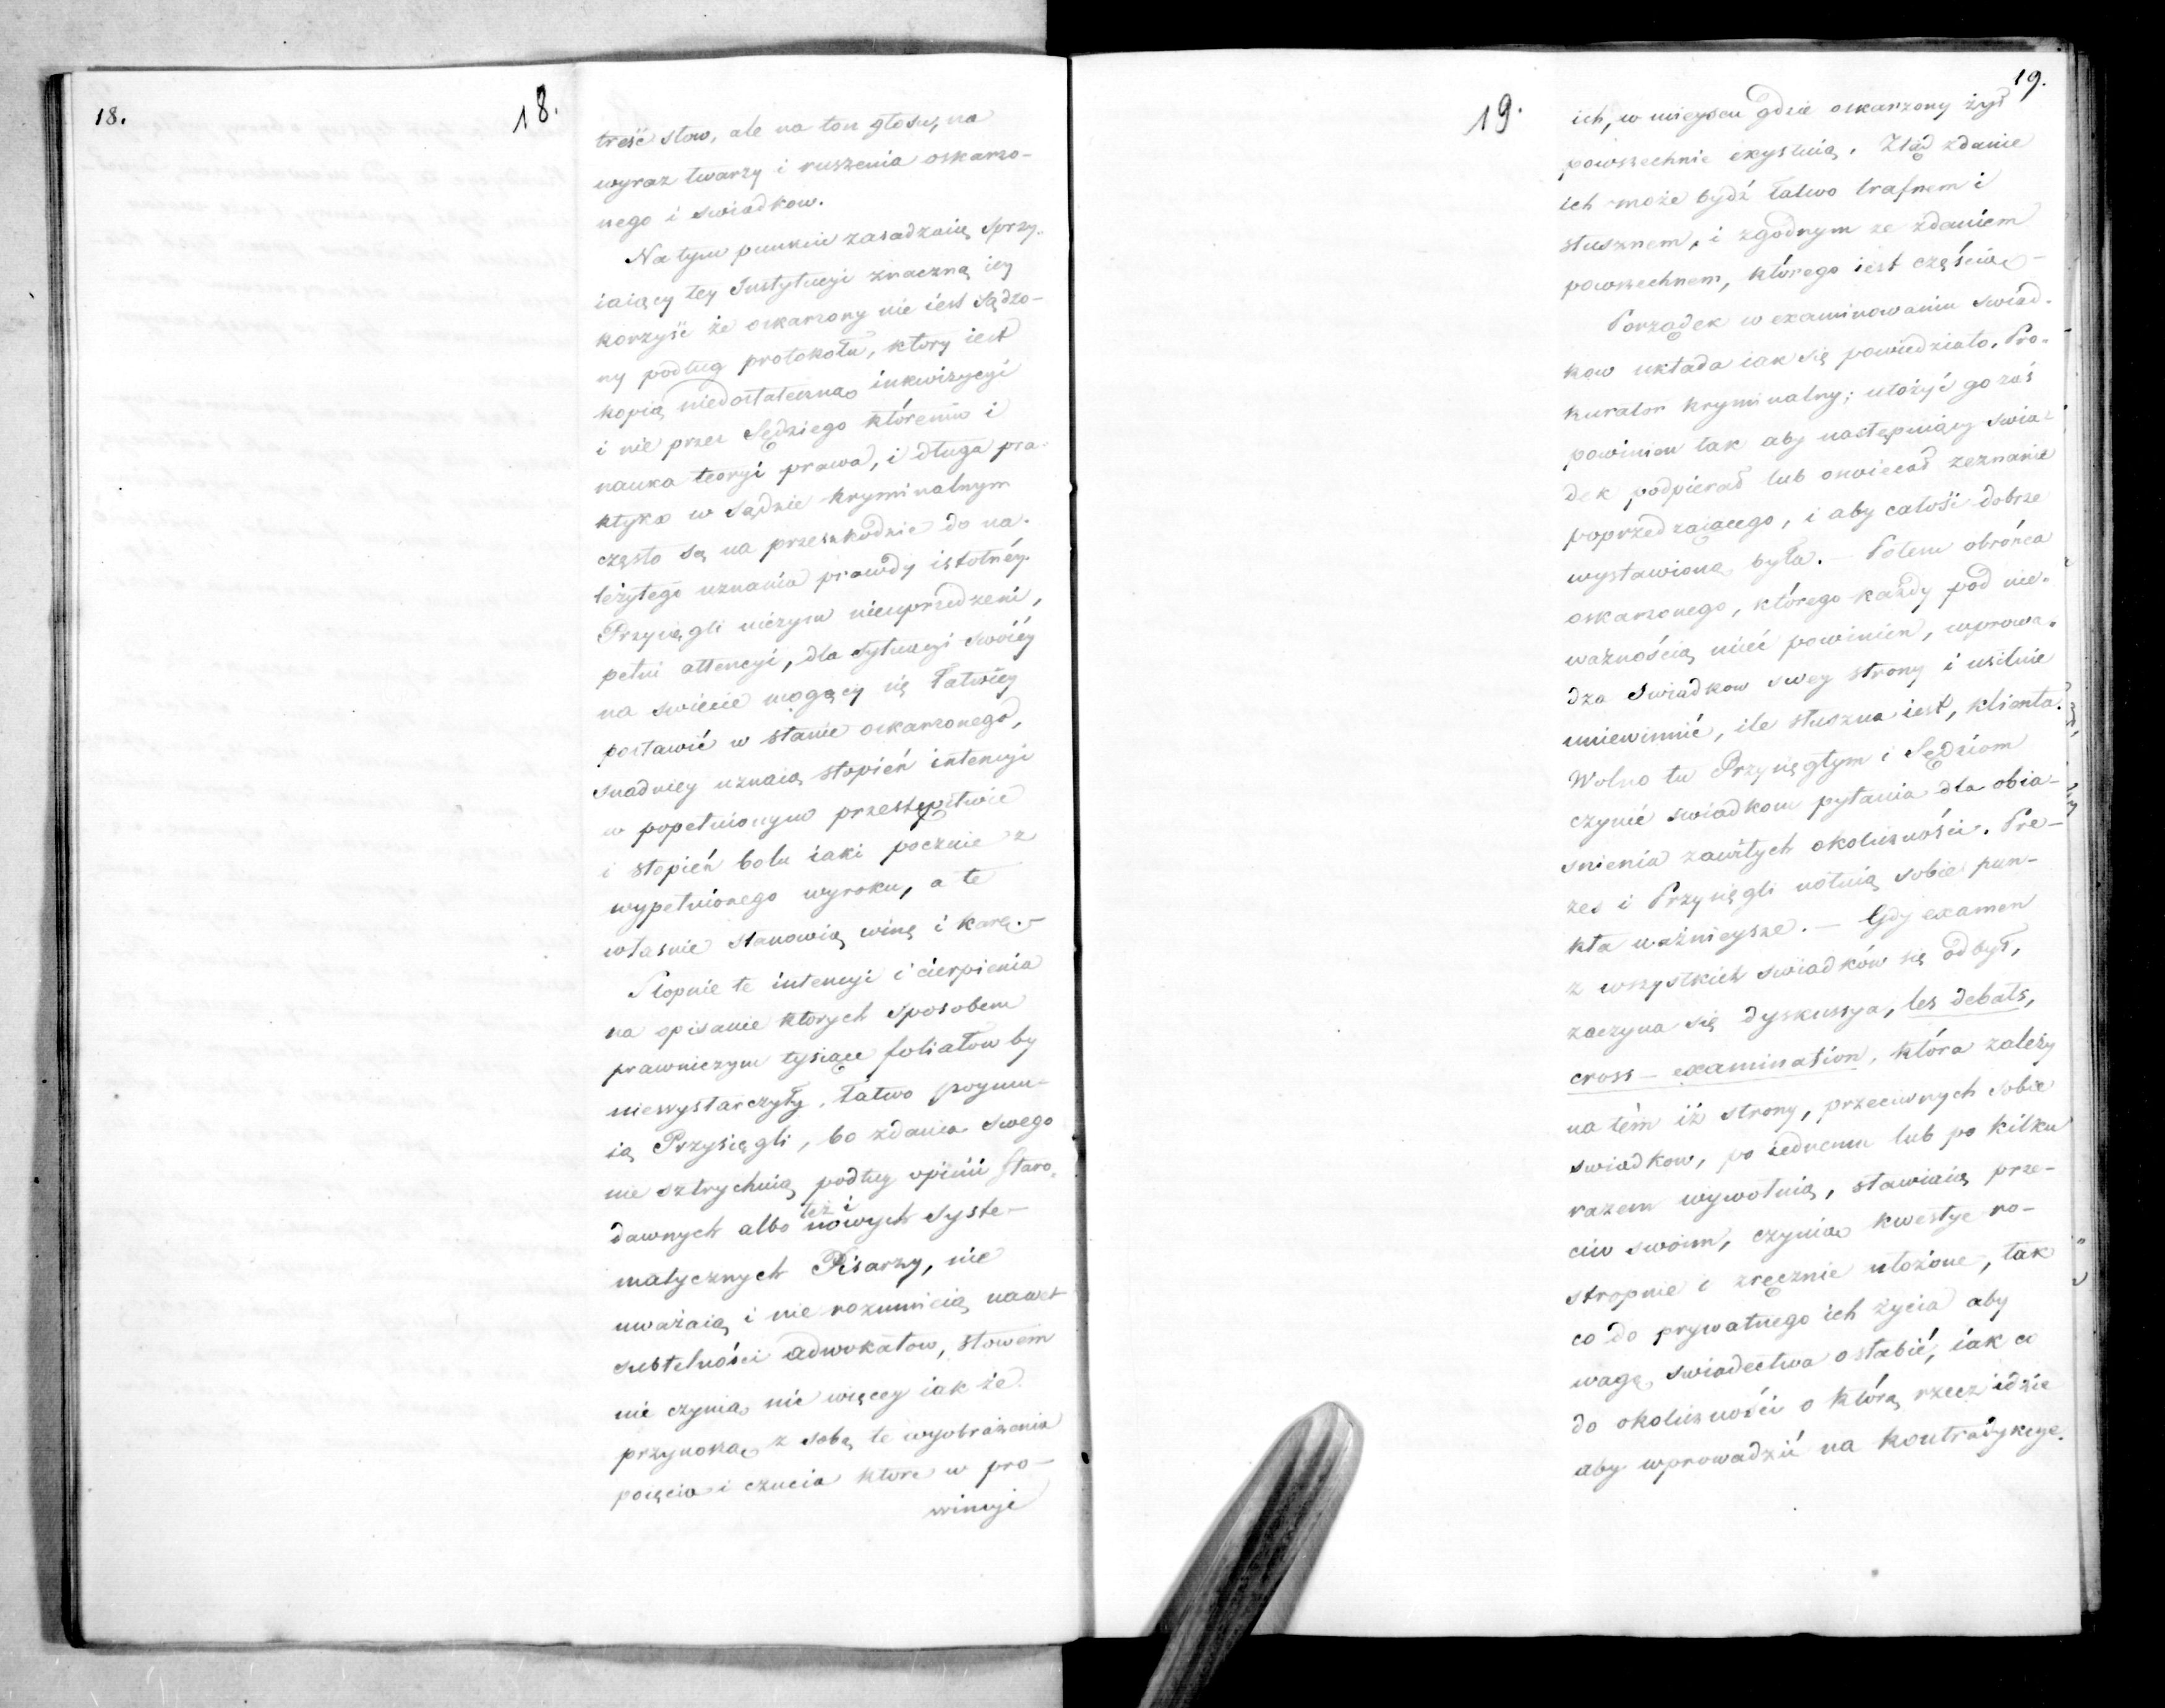 18.
18.
treść słow, ale na ton głosu, na
wyraz twarzy i ruszenia oskarżo-
nego i swiadkow.
Na tym punkcie zasadzaią sprzy-
iaiący tey Instytucyi znaczną iey
korzyść że oskarżony nie iest sądzo-
ny podług protokołu, ktory iest
kopią niedostateczną inkwizycyi
i nie przez Sędziego któremu i
nauka teoryi prawa, i długa pra-
ktyka w sądzie kryminalnym
często są na przeszkodzie do na-
leżytego uznania prawdy istotnéy.
Przysięgli niczym nieuprzedzeni,
pełni attencyi, dla sytuacyi swoiéy
na swiecie mogący się łatwiey
postawić w stanie oskarżonego,
snadniey uznaią stopień intencyi
w popełnionym przestępstwie
i stopień bolu iaki poczuie z
wypełnionego wyroku, a te
własnie stanowią winę i karę.-
Stopnie te intencyi i cierpienia
na opisanie ktorych sposobem
prawniczym tysiące foliałow by
niewystarczyły, łatwo poymu-
ią Przysięgli, bo zdania swego
nie sztrychuią podług opinii staro-
dawnych albo też i nowych syste-
matycznych Pisarzy, nie
uważaią i nie rozumieią nawet
subtelności adwokatow, słowem
nie czynią nic więcey iak że
przynoszą z sobą te wyobrażenia
poięcia i czucia ktore w pro-
wincyi
19.
19.
ich, w mieyscu gdzie oskarżony żył
powszechnie exystuią. Ztąd zdanie
ich może bydź łatwo trafnem i
słusznem, i zgodnym ze zdaniem
powszechnem, którego iest częścią -
Porządek w examinowaniu swiad-
kow układa iak się powiedziało, Pro-
kurator kryminalny; ułożyć go zaś
powinien tak aby następuiący swia-
dek podpierał lub oswiecał zeznanie
poprzedzaiącego, i aby całość dobrze
wystawiona była. - Potem obrońca
oskarżonego, którego każdy pod nie-
ważnością mieć powinien, wprowa-
dza Swiadkow swey strony i usilnie
uniewinnić, ile słuszna iest, klienta.
Wolno tu Przysięgłym i Sędziom
czynić swiadkom pytania dla obia-
snienia zawiłych okoliczności. Pre-
zes i Przysięgli notuią sobie pun-
kta ważnieysze. - Gdy examen
z wszystkich swiadków się odbył,
zaczyna się dyskussya, les debats,
cross-examination, która zależy
na tém iż strony, przeciwnych sobie
swiadkow, po iednemu lub po kilku
razem wywołuią, stawiaią prze-
ciw swoim, czynią kwestye ro-
stropnie i zręcznie ułożone, tak
co do prywatnego ich życia aby
wagę swiadectwa osłabić, iak co
do okoliczności o którą rzecz idzie
aby wprowadzić na kontradykcye.